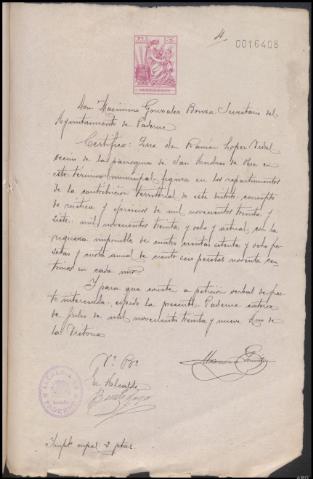 4
0016408
Don Maximino Gonzalez Bouza Secretario del
Ayuntamiento de Paderne
Certifico: Que Dn Ramón Lopez Vidal
vecino de la parroquia de San Andres de Obre en
este término municipal, figura en los repartimientos
de la contribución territorial de este distrito concepto
de rústica y ejercicios de mil novecientos treinta y
siete, mil novecientos treinta y ocho y actual, con la
riqueza imponible de cuatrocientas setenta y ocho pe-
setas y cuota anual de ciento con pesetas noventa cen-
timos en cada uno
Y para que conste a petición verbal de par-
te interesada expido la presente. Paderne catorce
de Julio de mil novecientos treinta y nueve Año de
la Victoria
Vº Bº
El Alcalde
ALCALDIA DE PADERNE